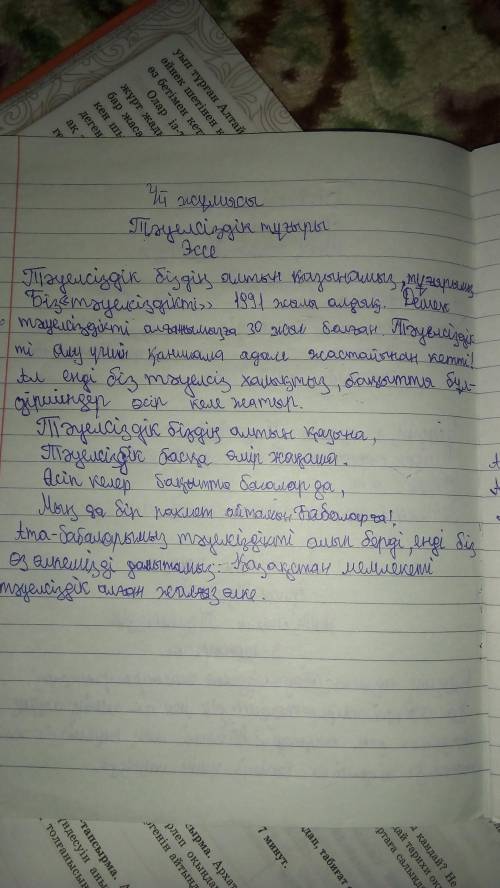 Үй жұмысы
Тәуелсіздік тұғыры
Эссе
Тәуелсіздік біздің алтын қазынамыз, тұғырымыз
Біз <<тәуелсіздікті>> 1991 жылы алдық. Демек
тәуелсіздікті алғанымызға 30 жыл болған Тәуелсіздік
ті алу үшін қаншама адам жастайынан кетті!
Ал енді біз тәуелсіз халықпыз, бақытты бүл-
діршіндер өсіп келе жатыр.
Тәуелсіздік біздің алтын қазына,
Тәуелсіздік басқа өмір жаңаша.
Өсіп келер бақытты балалар да,
Мың да бір рахмет айтамын Бабаларға!
Ата-бабаларымыз тәуелсіздікті алып берді, енді біз
өз өлкемізді дамытамыз. Қазақстан мемлекеті
тәуелсіздік алған жалғыз өлке.
уып тұрған Алтай
әйнек шетінен
өз бетімен кет
Олар із-т
жұрт жады
бар жаса
көн
деген
ақ
7 минут.